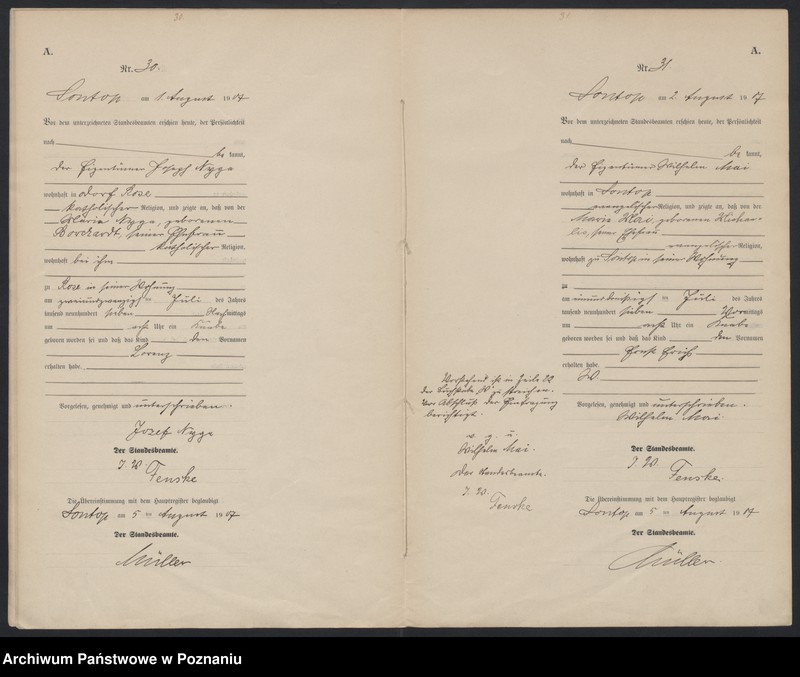 31.
A.
Nr. 30.
Sontop am 1. August 1907
Vor dem unterzeichneten Standesbeamten erschien heute, der Persönlichkeit
nach be kannt,
der Eigentümer Joseph Nyga
wohnhaft in Dorf Rose
katholischer Religion, und zeigte an, daß von der
Maria Nyga, geborenen
Borchardt, seiner Ehefrau
katholischer Religion,
wohnhaft bei ihm
zu Rose in seiner Wohnung
am zweiundzwanzigsten Juli des Jahres
tausend neunhundert sieben Nachmittags
um acht Uhr ein Knabe
geboren worden sei und daß das Kind den Vornamen
Lorenz
erhalten habe.
Vorgelesen, genehmigt und unterschrieben.
Jozef Nyga
Der Standesbeamte.
J. V.
Fenske
Die Übereinstimmung mit dem Hauptregister beglaubigt
Sontop am 5 ten August 1907
Der Standesbeamte.
Müller
31.
A.
Nr. 31
Sontop am 2. August 1907
Vor dem unterzeichneten Standesbeamten erschien heute, der Persönlichkeit
nach be kannt,
der Eigentümer Wilhelm Mai
wohnhaft in Sontop
evangelischer Religion, und zeigte an, daß von der
Maria Mai, geborenen
seiner Ehefrau
evangelischer Religion,
wohnhaft zu Sontop in seiner Wohnung
zu
am einunddreißigsten Juli des Jahres
tausend neunhundert sieben Vormittags
um acht Uhr ein Knabe
geboren worden sei und daß das Kind den Vornamen
Ernst Erich
erhalten habe.
W
Vorgelesen, genehmigt und unterschrieben.
Wilhelm Mai
Der Standesbeamte.
J. V.
Fenske.
Die Übereinstimmung mit dem Hauptregister beglaubigt
Sontop am 5 ten August 1907
Der Standesbeamte.
Müller.
Vorstehend ist in Zeile 22
der Buchstabe W zu streichen.
Vor Abschluß der Eintragung
berichtigt.
v. g. u.
Wilhelm Mai.
Der Standesbeamte.
J. V.
Fenske
Archiwum Państwowe w Poznaniu